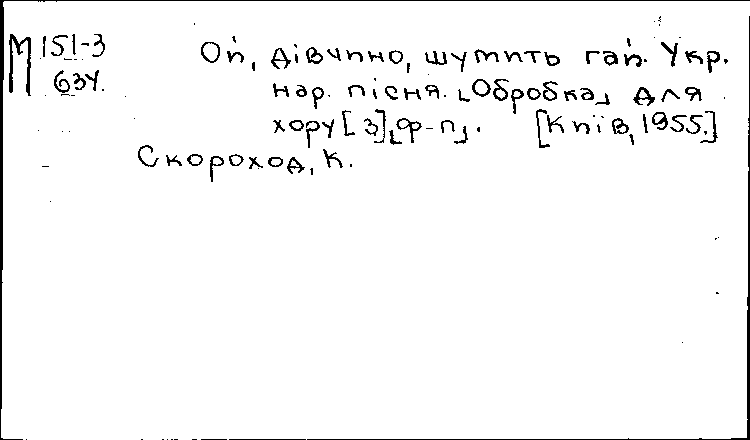 М 151-3
634.
Ой, дівчино, шумить гай. Укр.
нар. пісня. [Обробка] для
хору [з] [ф-п]. [Київ, 1955.]
Скороход, К.